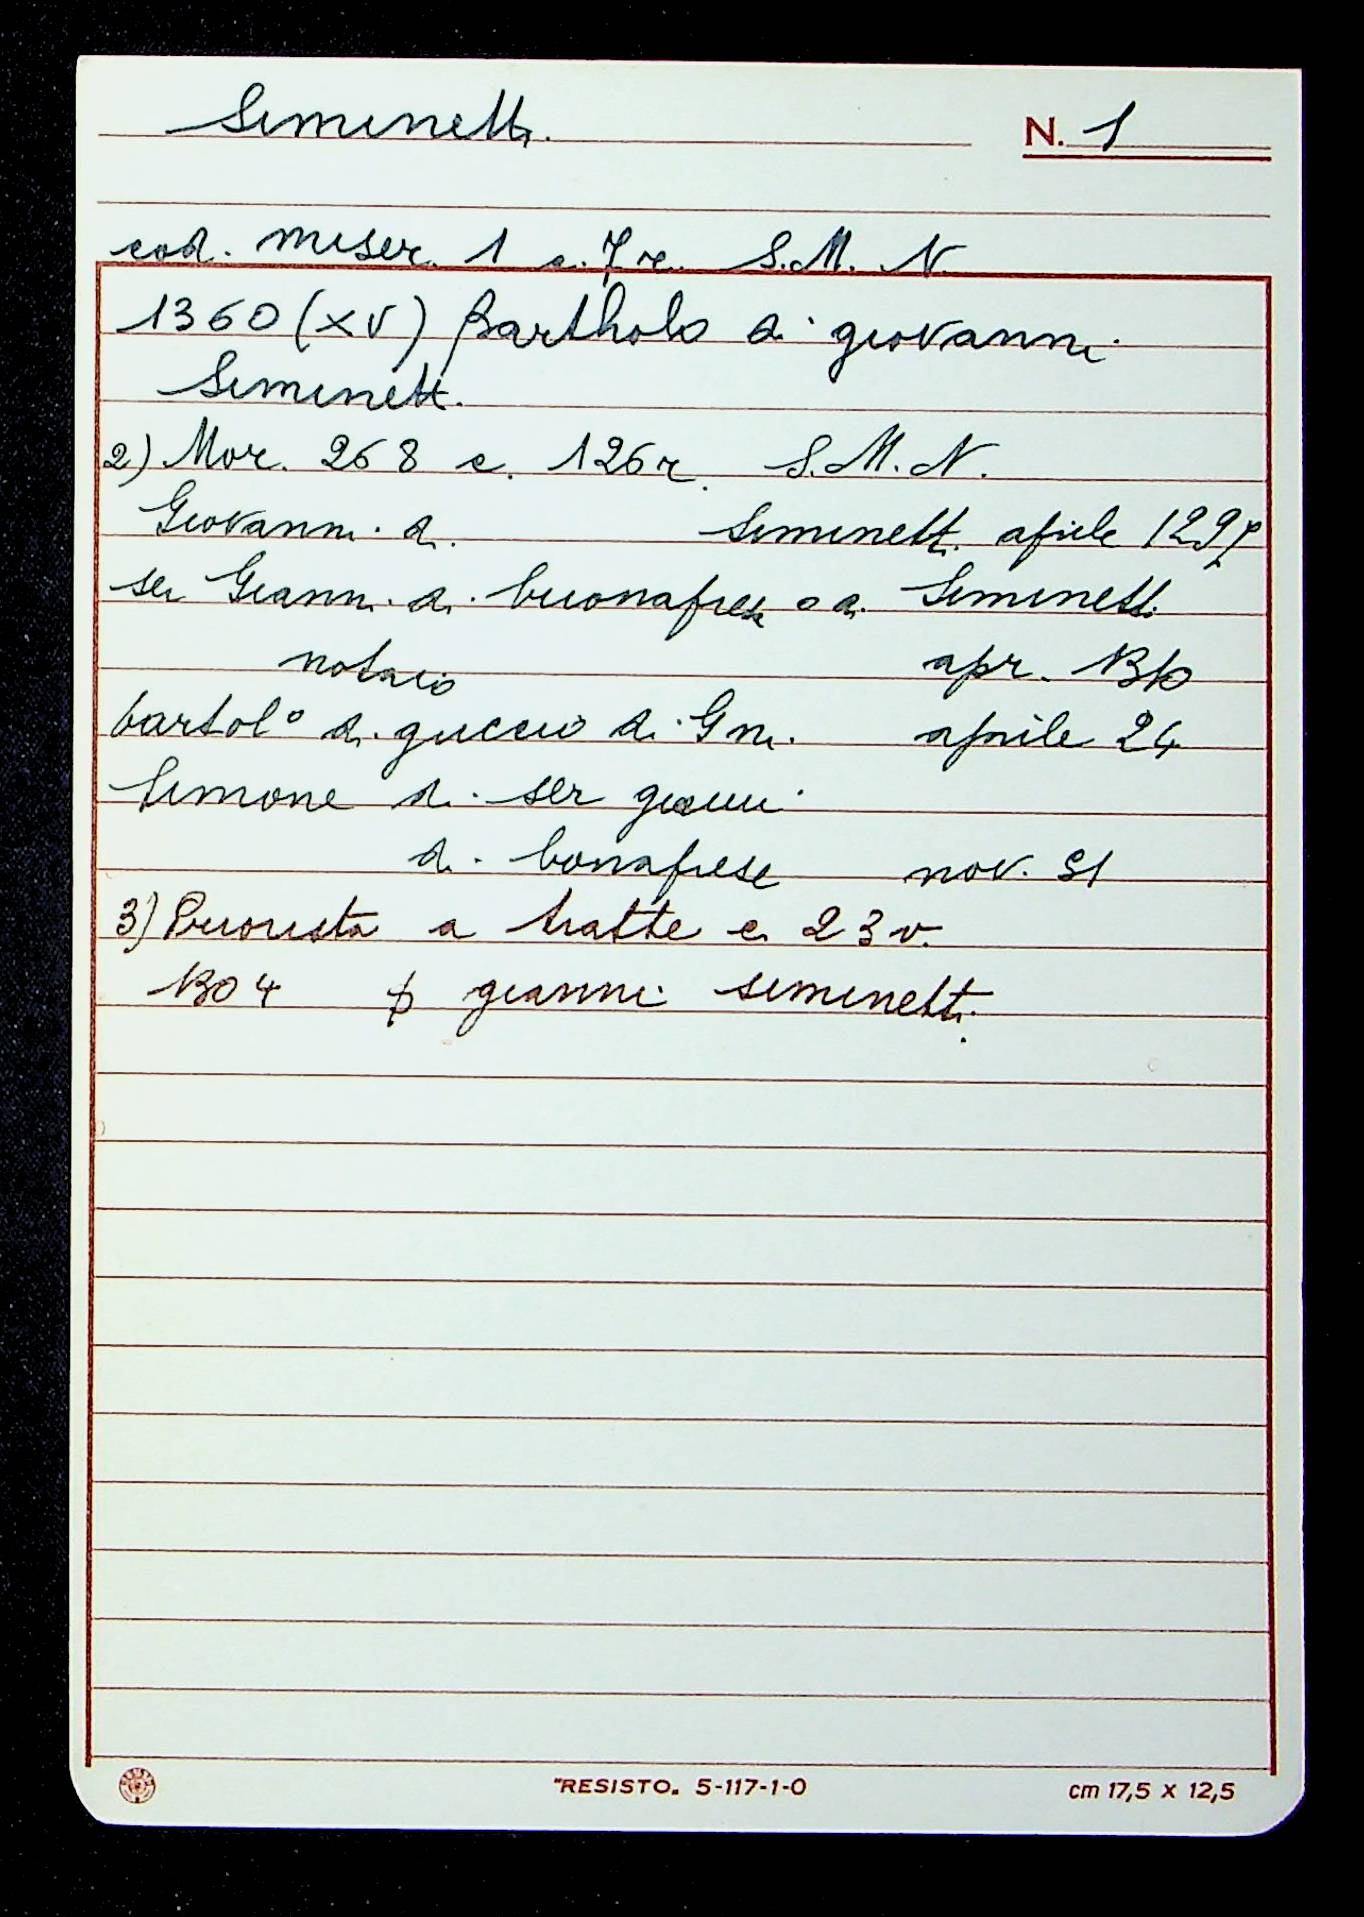 Siminetti N. 1
cod. miser. 1 c. 7 r. S.M.N.
1360 (XV) Bartholo di giovanni
Siminetti
2) Mor. 268 c. 126r. S.M.N.
Giovanni di Siminetti aprile
ser Gianni di buonafrese o di Siminetti
notaio apr. 1310
bartol° di guccio di Gni. aprile 24
Simone di ser gianni
di bonafrese nov.
3) Priorista a tratte c. 23 v.
1304 p gianni siminetti
"RESISTO„ 5-117-1-0 cm 17,5 x 12,5